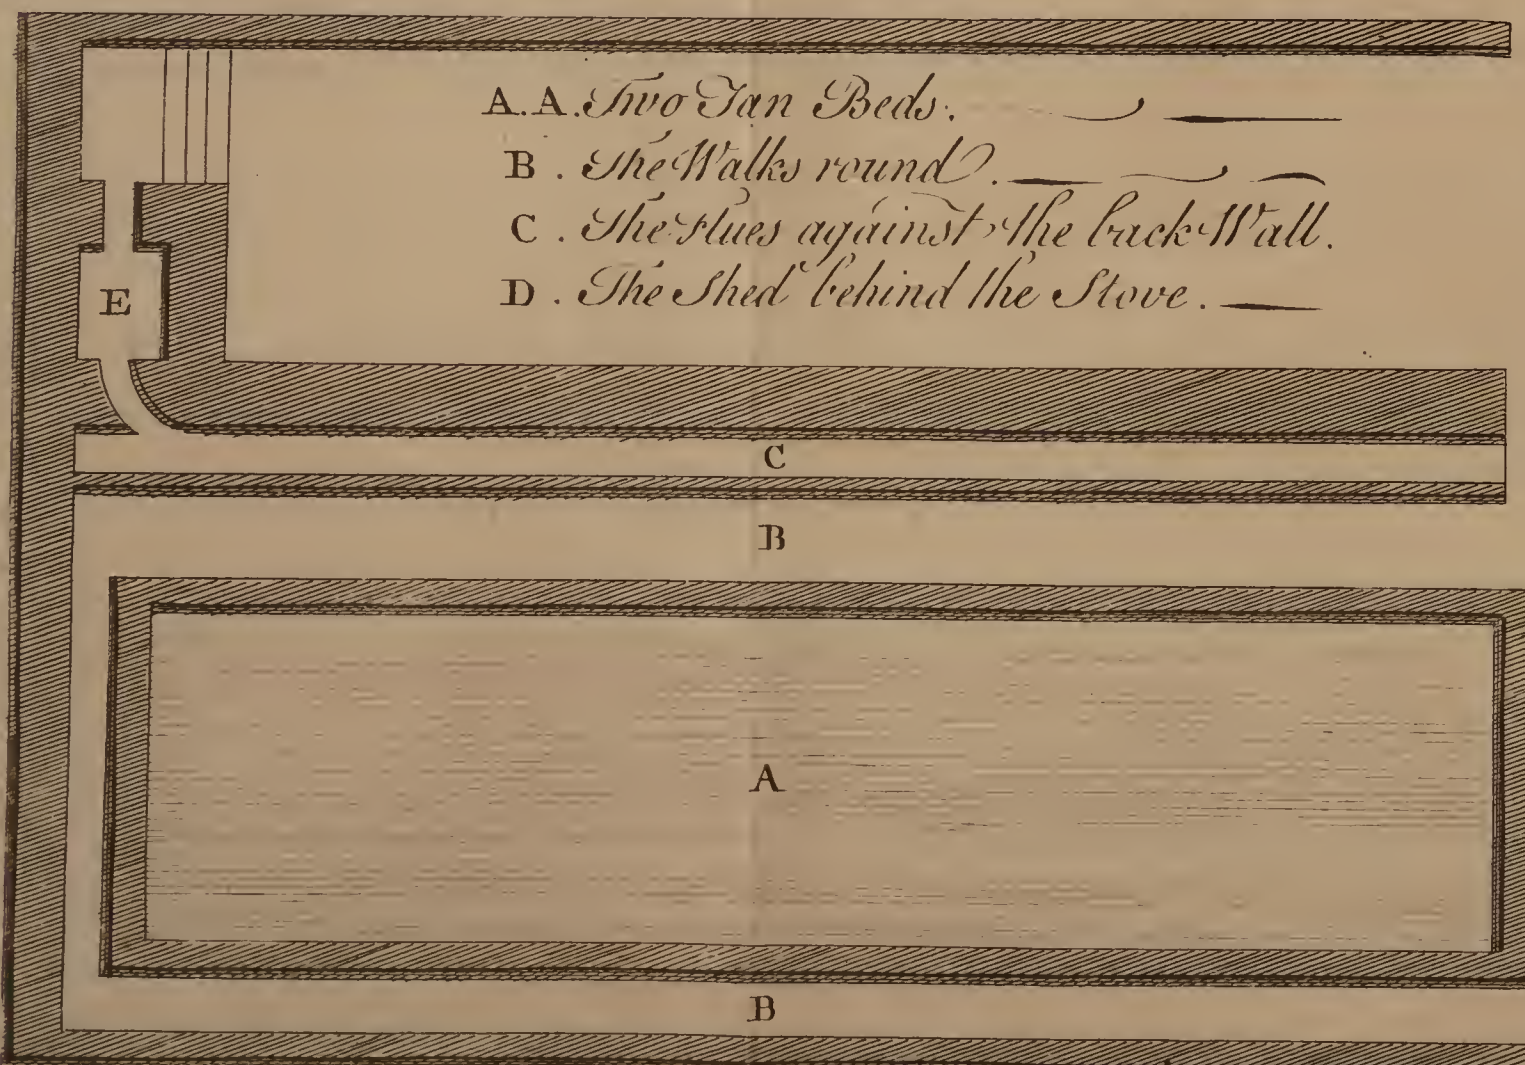 A.A. Two Tan Beds.
B. The Walks round.
C. The Flues against the back Wall.
D. The Shed behind the Stove.
E
C
B
A
B